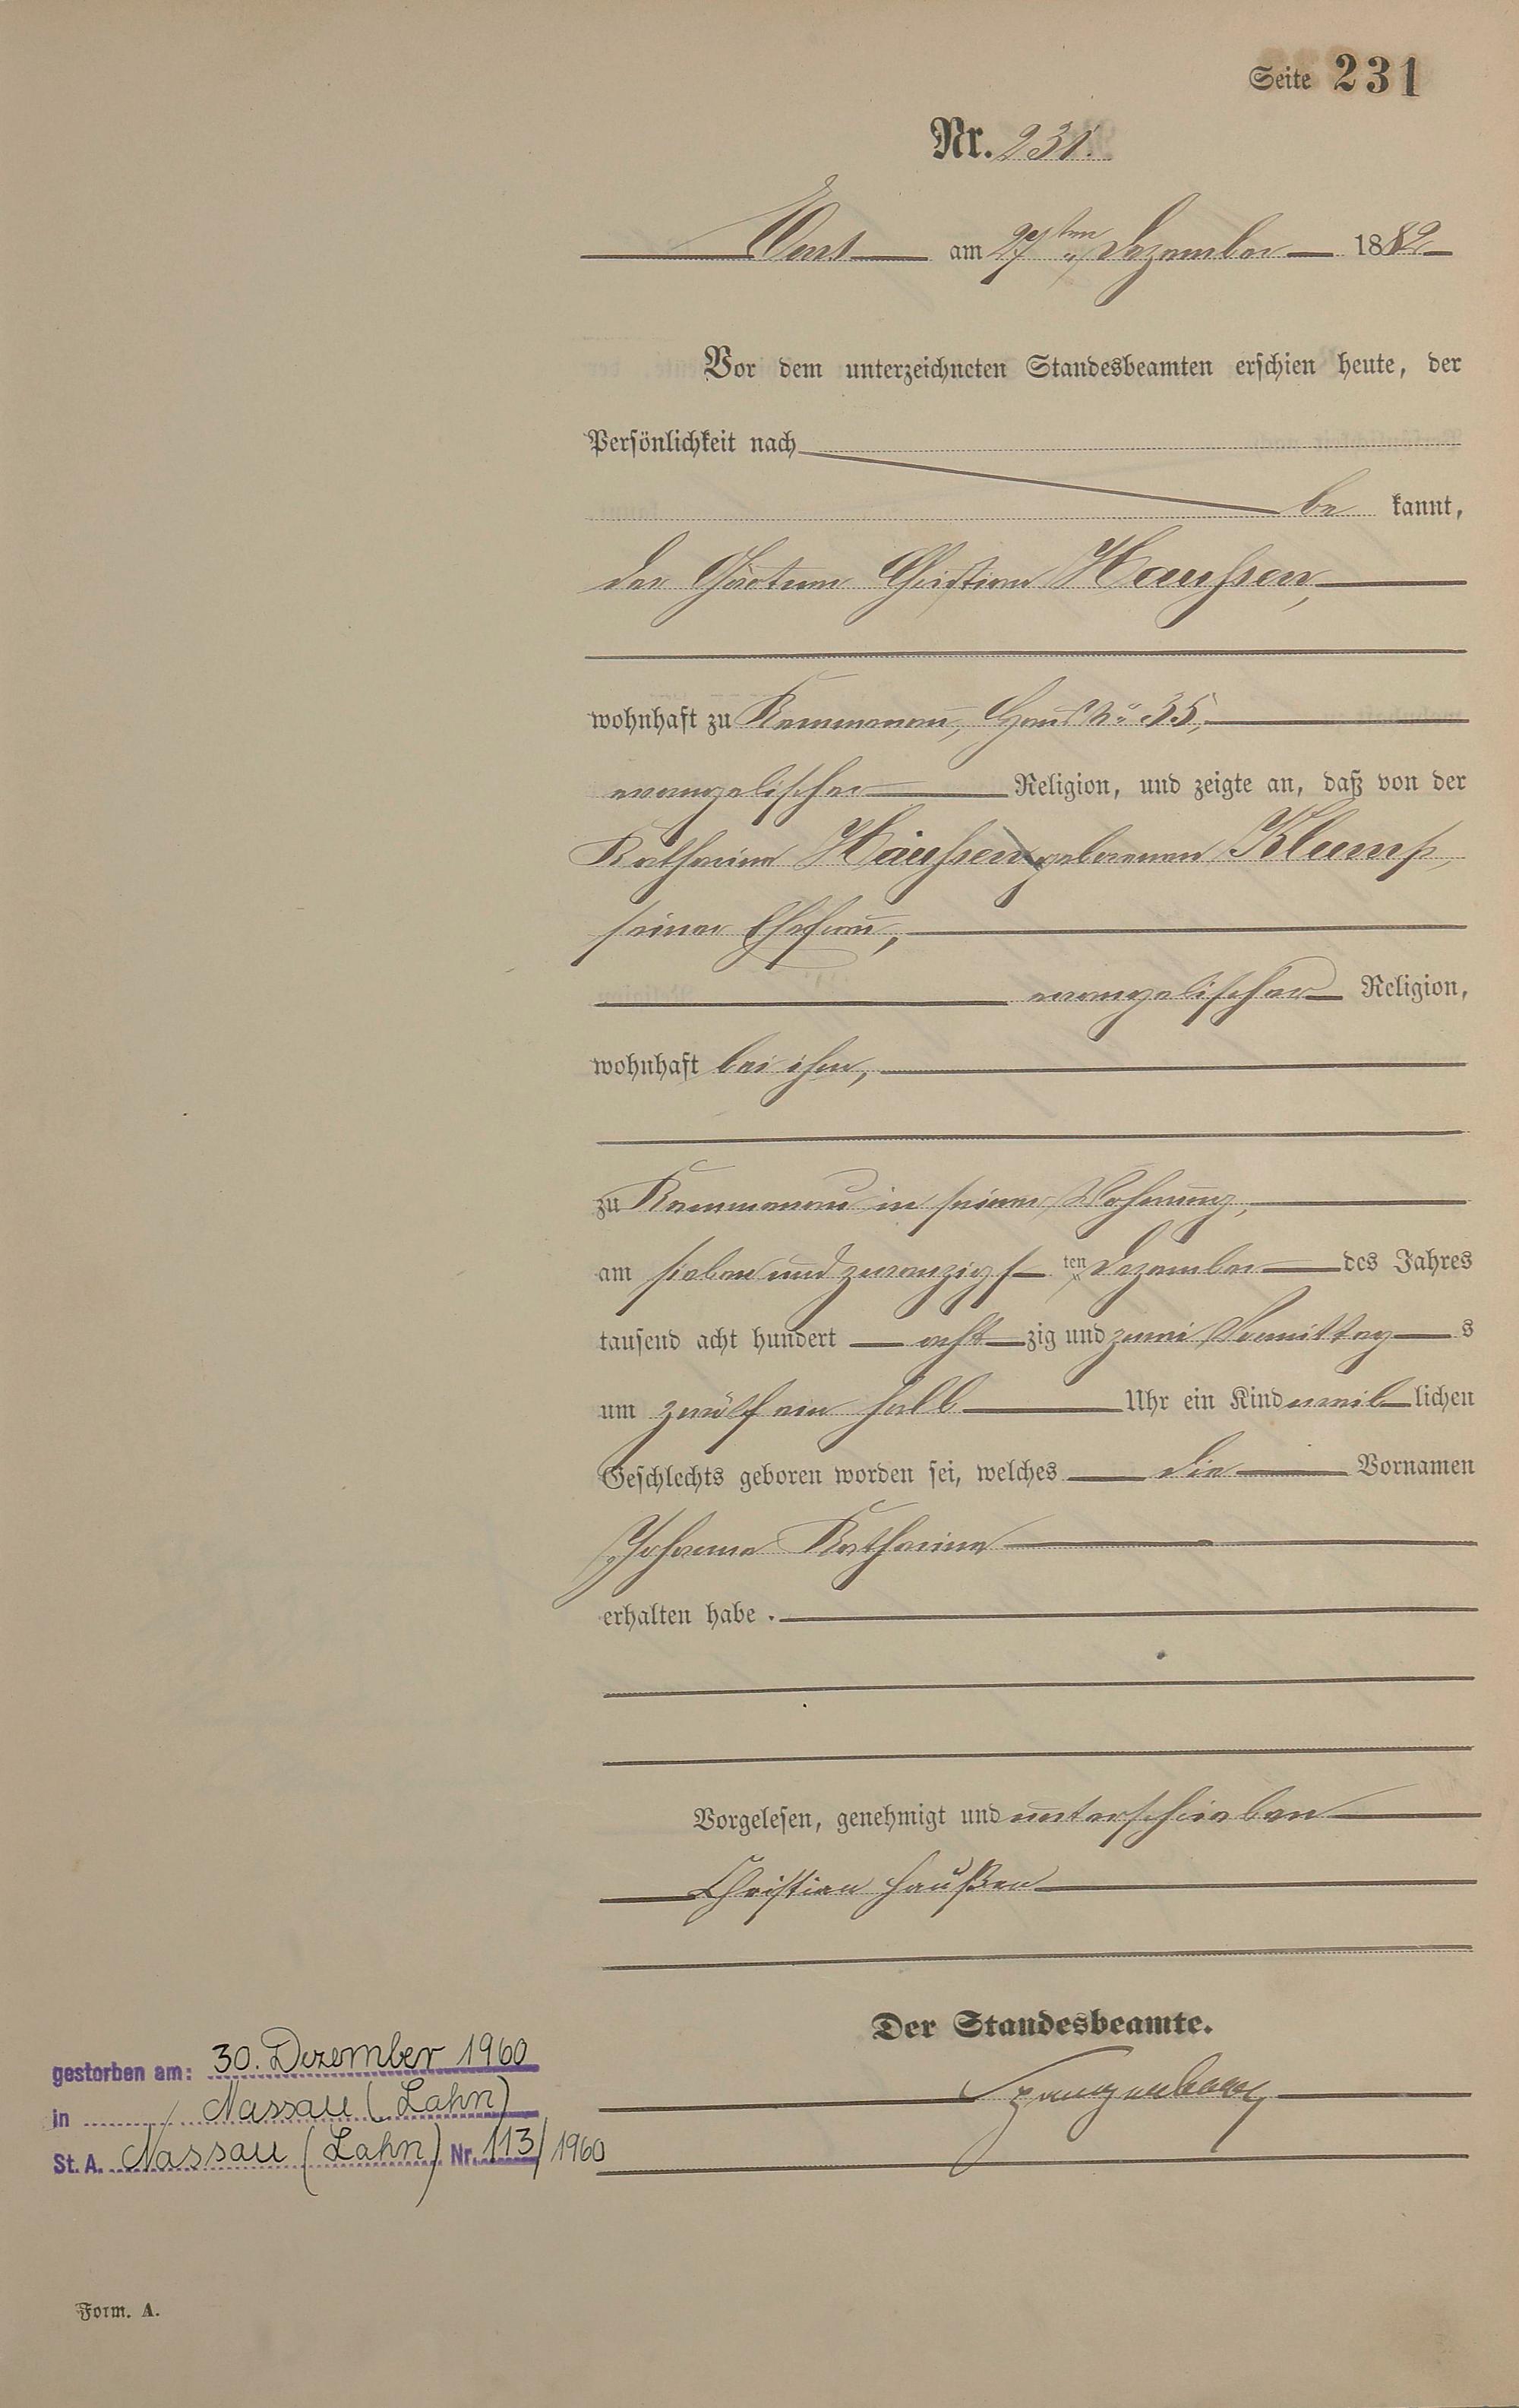 Seite 231
Nr. 231.
Ems am 27ten Dezember 1882
Vor dem unterzeichneten Standesbeamten erschien heute, der
Persönlichkeit nach
be kannt,
der Gärtner Christian Haußen,
wohnhaft zu Kemmenau, Haus No 35,
evangelischer Religion, und zeigte an, daß von der
Katharina Haußen geborenen Klump,
seiner Ehefrau,
evangelischer Religion,
wohnhaft bei ihm,
zu Kemmenau in seiner Wohnung,
am sieben und zwanzigsten Dezember des Jahres
tausend acht hundert achtzig und zwei Vormittags
um zwölf ein halb Uhr ein Kind weiblichen
Geschlechts geboren worden sei, welches die Vornamen
Johanna Katharina
erhalten habe.
Vorgelesen, genehmigt und unterschrieben
Christian Haußen
Der Standesbeamte.
Spangenberg
gestorben am: 30. Dezember 1960
in Nassau (Lahn)
St. A. Nassau (Lahn) Nr. 113/1960
Form. A.